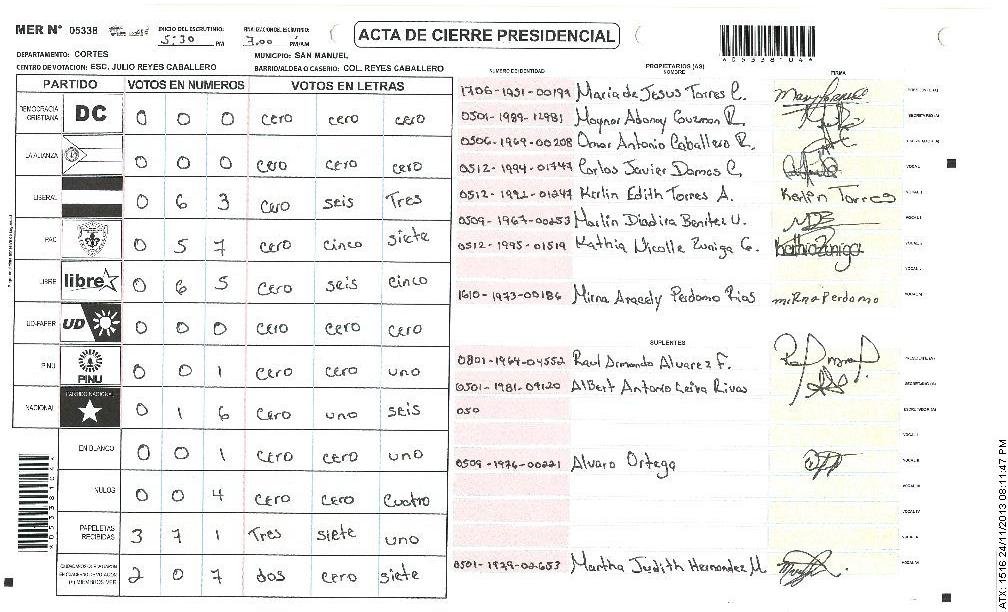 MER Nº 05338
INICIO DEL ESCRUTINIO: 5:30 PM
FINALIZACION DEL ESCRUTINIO: 7:00 PM/AM
ACTA DE CIERRE PRESIDENCIAL
DEPARTAMENTO: CORTES
MUNICIPIO: SAN MANUEL
CENTRO DE VOTACION: ESC. JULIO REYES CABALLERO
BARRIO/ALDEA O CASERIO: COL. REYES CABALLERO
PARTIDO VOTOS EN NUMEROS VOTOS EN LETRAS
DEMOCRACIA CRISTIANA DC 0 0 0 cero cero cero
LA ALIANZA 0 0 0 cero cero cero
LIBERAL 0 6 3 cero seis Tres
PAC 0 5 7 cero cinco siete
LIBRE libre 0 6 5 cero seis cinco
UD-FAPER UD 0 0 0 cero cero cero
PINU PINU 0 0 1 cero cero uno
NACIONAL PARTIDO NACIONAL 0 1 6 cero uno seis
EN BLANCO 0 0 1 cero cero uno
NULOS 0 0 4 cero cero cuatro
PAPELETAS RECIBIDAS 3 7 1 Tres siete uno
2 0 7 dos cero siete
NUMERO DE IDENTIDAD
PROPIETARIOS (AS)
NOMBRE
FIRMA
1706-1951-00199 Maria de Jesus Torres C.
0501-1989-12981 Maynor Adonay Guzman R.
0506-1969-00208 Omar Antonio Caballero R.
0512-1994-01747 Carlos Javier Damas C.
0512-1992-01247 Kerlin Edith Torres A. Kerlin Torres
0509-1967-00253 Marlin Diadira Benitez U.
0512-1995-01519 Kathia Nicolle Zuniga G. Kathia Zuniga
1610-1973-00186 Mirna Aracely Perdomo Rias mirna perdomo
SUPLENTES
0801-1964-04552 Raul Armando Alvarez F.
0501-1981-09120 Albert Antonio Leiva Rivas
050
0509-1976-00221 Alvaro Ortega
0501-1979-02653 Martha Judith Hernandez M.
ATX: 1516 24/11/2013 08:11:47 PM